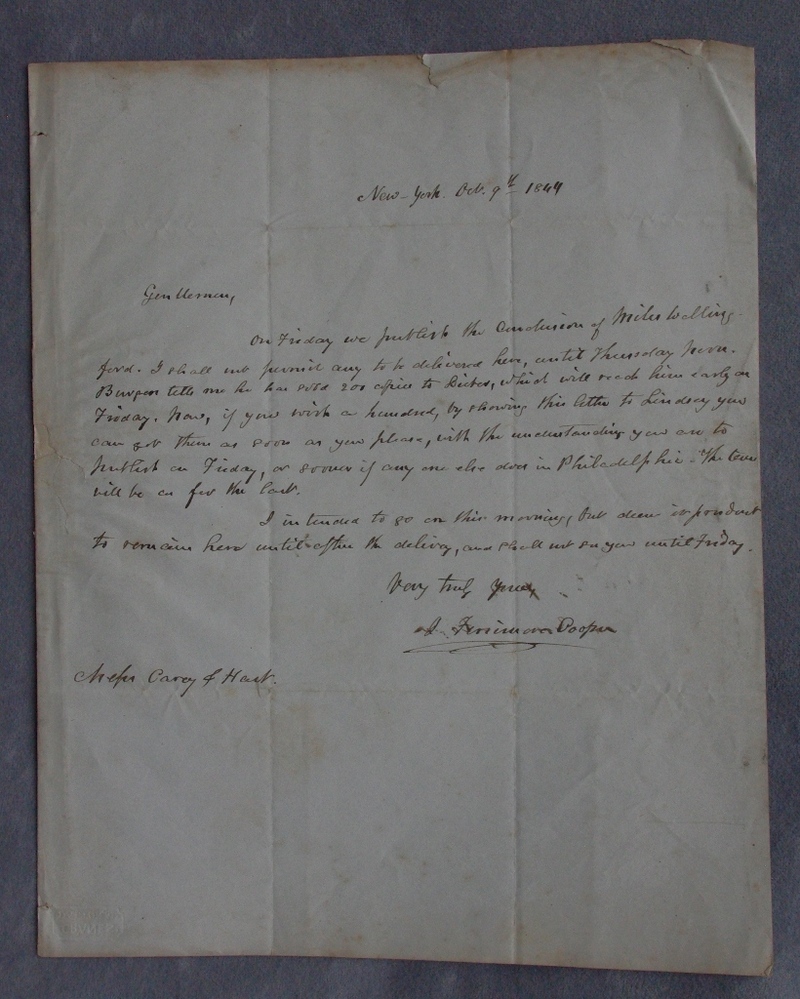 New-York. Oct. 9th 1844
Gentlemen,
On Friday we publish the Conclusion of Miles Walling-
ford. I shall not permit any to be delivered here, until Thursday noon.
Burgess tells me he has sold 200 copies to which will reach him early on
Friday. Now, if you wish a hundred, by showing this letter to Lindsay you
can get them as soon as you please, with the understanding you are to
publish on Friday, or sooner if any one else does in Philadelphia - The terms
will be as for the last.
I intended to go on this morning, but deem it prudent
to remain here until after the delivery, and shall not see you until Friday.
Very truly Yours,
J. Fenimore Cooper
Messrs Carey & Hart.